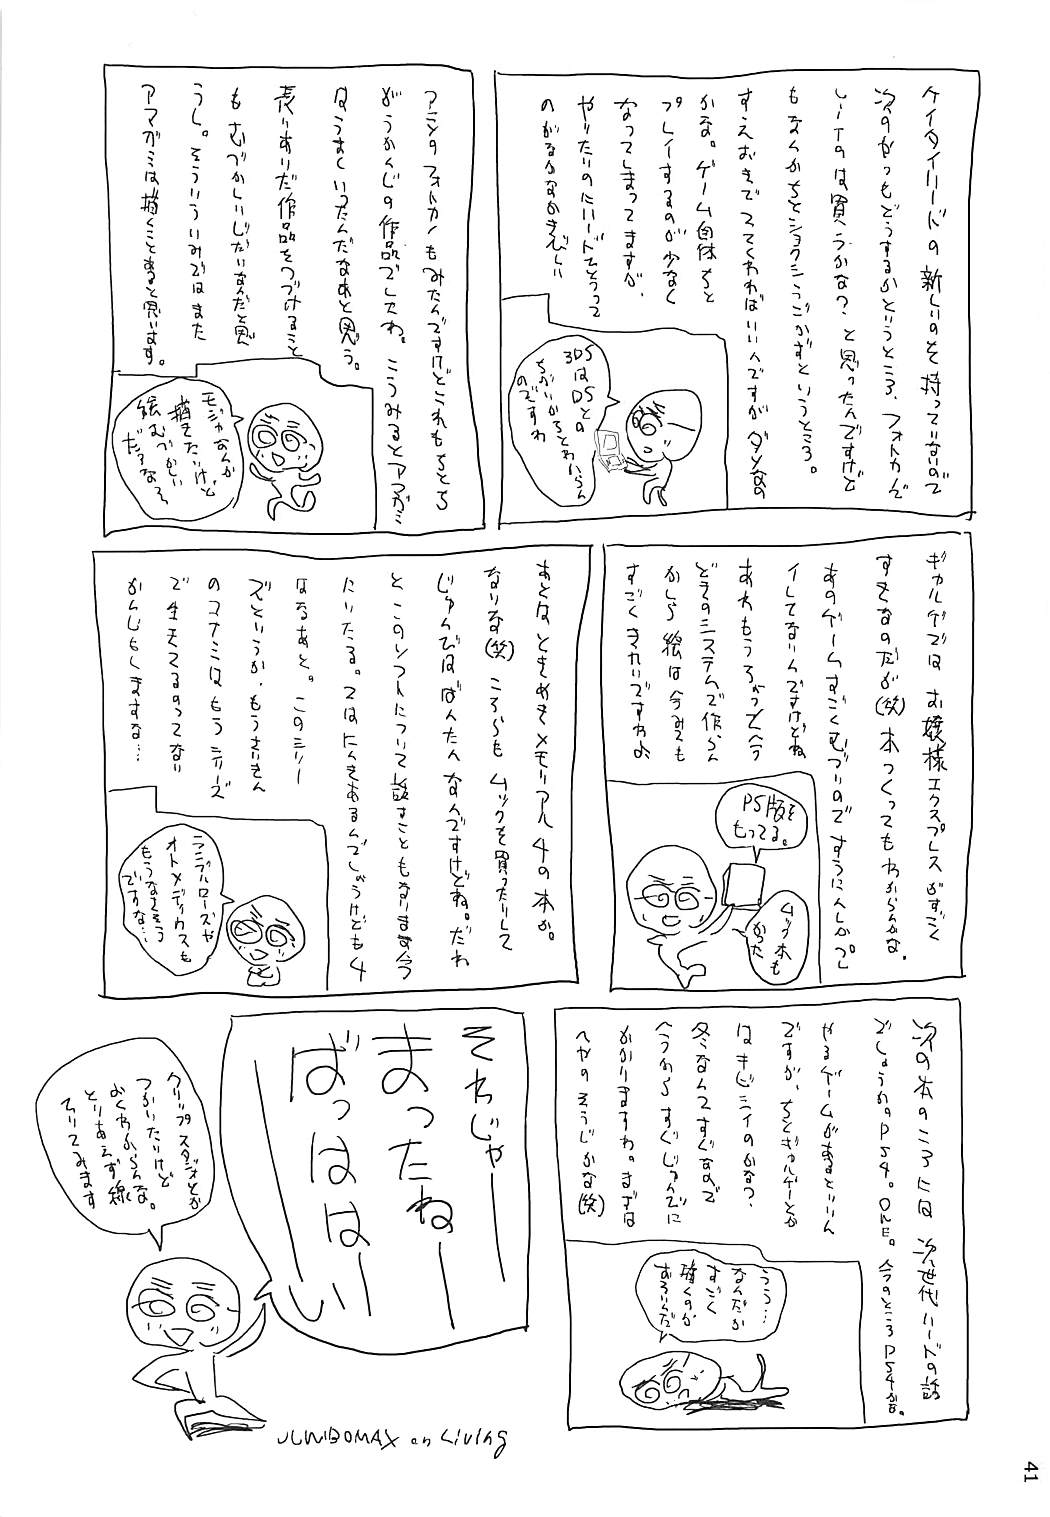 ケイタイハードの新しいのを持っていないので
次のがつもどうするかというところ、フォトカノが
しーTのは買うかな?と思ったんですけど
もなんかちとショクシうごかずというところ。
すえおきででてくわればいいんですがダメなの
かな。ゲーム自体ちと
プレイするのが少なく
なってしまってますが、
やりたいのにハードでとうって
のがなかなかきびしい
3DSは
DSとの
ちがいがちとわからん
のですわ
アニメのフォトカノもみたんですけどこれもちとち
がうかんじの作品でしたわ。こうみるとアマガミ
はうまくいったんだなあと思う。
表りありだ作品をつづけること
もむづかしいじだいなんだと思
うし。そういういみではまた
アマガミは描くことあると思います。
モジャなんか
描きたいけど
絵むづかしい
だろなろ
ギャルゲではお嬢様エクスプレスがすごく
すきなのだが(笑)本つくってもわからんかな。
あのゲームすごくむづいのですうにんしかプレ
イしてないんですけどね
あれもうろおって今
どきのシステムで作らん
かしら絵は今みても
すごくきれいですわよ
PS版を
もってる。
ムック本も
かった
あとはときめきメモリアル4の本か。
なりな(笑)ころらもムックを買ったりして
じゅんびはばんたんなんですけどね。だわ
とこのソフトについて話すこともなりますタ今
にいたる。ではにんきあるんでしょうけども4
はなるあと。このシリー
ズというか、もうさいきん
のコナミはもうシリーズ
で生きてるのってない
かんじもしますな…
ランブルローズや
オトメディウスも
もうなさそう
ですな…
次の本のころには次世代ハードの話
でしょうか。PS4。ONE。今のところPS4かな。
やるゲームがあるといいん
ですが、ちとギャルゲーとか
はキビシイのかな?
冬なんてすぐなので
今うわらすぐじゅんびに
かかりますわ。まずは
へやのそうじかな(笑)
うう…
なんだか
すごく
描くのが
おそいんだ
それじゃー
まったねー
ばっははーい
クリップスタジオとか
つかいたいけど
よくわからんな。
とりあえず線く
でいてみます
JUMBOMAX on Living
41